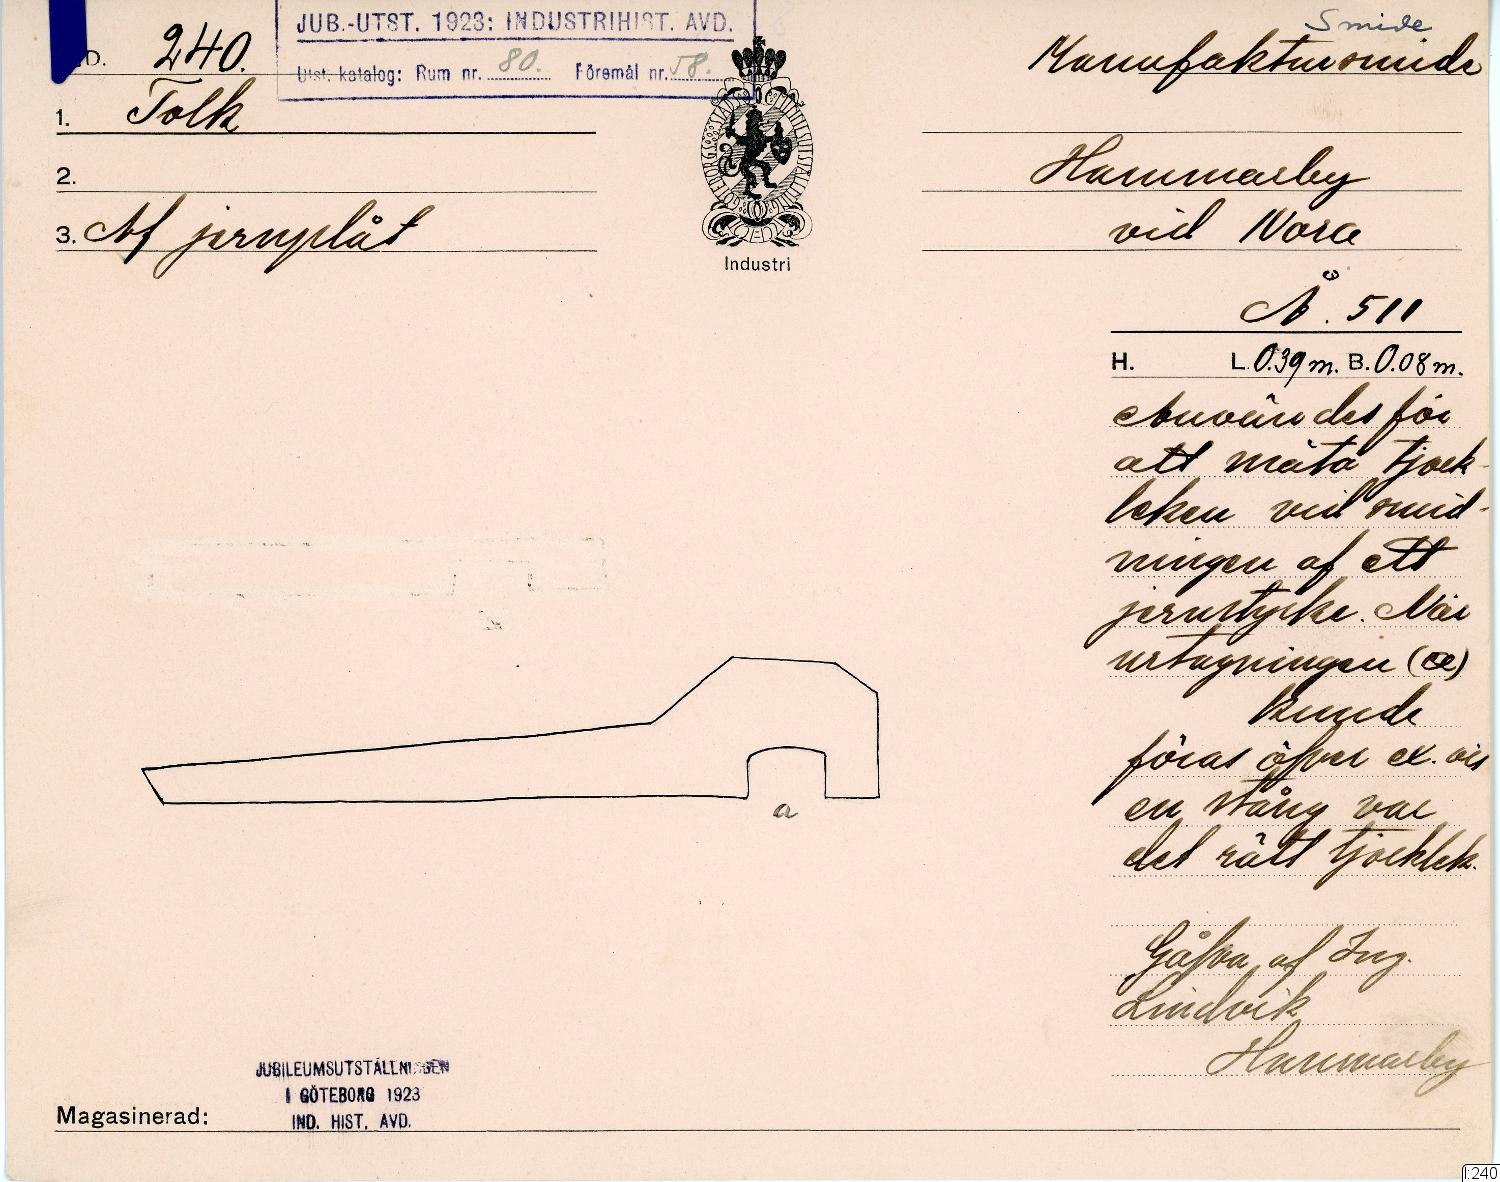 Smide
JUB.-UTST. 1923: INDUSTRIHIST. AVD.
D. 240.
Utst. katalog: Rum nr. 80. Föremål nr. 58.
Manufaktursmide
1. Tolk
2.
Hammarby
3. Af jernplåt
vid Nora
GÖTEBORGS STADS MINNESUTSTÄLLNING
Industri
Å. 511
H. L. 0.39 m. B. 0.08 m.
Användes för
att mäta tjock-
leken vid smid-
ningen af ett
jernstycke. När
urtagningen (a)
kunde
föras öfver ex. vis
en stång var
det rätt tjocklek.
a
Gåfva af Ing.
Lindvik
Hammarby
JUBILEUMSUTSTÄLLNINGEN
I GÖTEBORG 1923
IND. HIST. AVD.
Magasinerad:
I:240